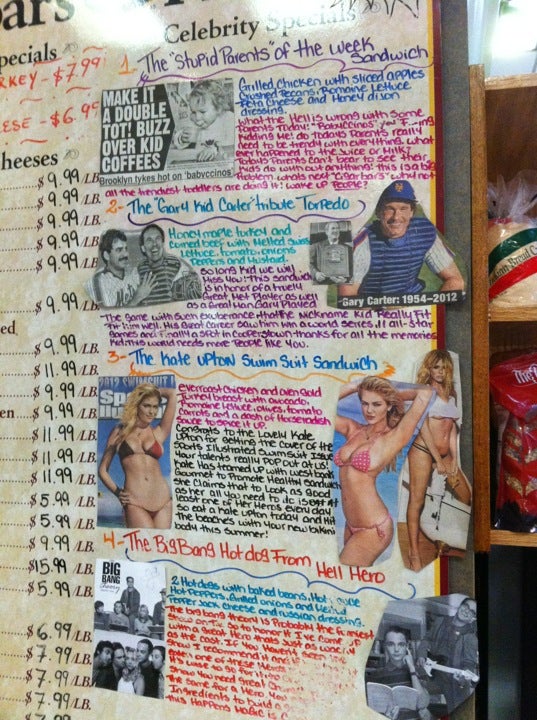 Celebrity Specials
pecials
RKEY - $7.99
ESE - $6.9
heeses
$9.99/LB.
$9.99/LB.
$9.99/LB.
$9.99/LB.
$9.99/LB.
$9.99/LB.
ed
$9.99/LB.
$11.99/LB.
$9.99/LB.
en
$9.99/LB.
$11.99/LB.
$11.99/LB.
$11.99/LB.
$5.99/LB.
$5.99/LB.
$9.99/LB.
$15.99/LB.
$5.99/LB.
$6.99/LB.
$7.99/LB.
$7.99/LB.
$7.99/LB.
1- The "Stupid Parents" of the week Sandwich
MAKE IT
A DOUBLE
TOT! BUZZ
OVER KID
COFFEES
Brooklyn tykes hot on 'babyccinos'
Grilled Chicken with sliced apples
Crushed Pecans, Romaine Lettuce
Feta Cheese and Honey dijon
dressing.
what the Hell is wrong with Some
Parents Today! "Babyccinos" you F---ing
kidding Me! do Todays Parents really
need to be trendy with everything. what
ever happened to the Juice or Milk?
Todays Parents can't bear to see their
kids do with out anything! this is a big
Problem. whats next "Cigar bars" why not
all the trendiest toddlers are doing it! wake up People!
2- The "Gary Kid Carter" tribute Torpedo
Honey maple turkey and
corned beef with Melted Swiss
Lettuce, tomato, onions
Peppers and Mustard.
So long Kid we will
Miss you! This Sandwich
is in honor of a truely
Great Met Player as well
as a Great Man. Gary Played
The game with Such exuberance that the nickname Kid Really Fit
him well. His Great Career saw him win a world series, 11 all-star
Games and Finally a spot in Cooperstown-thanks for all the memories
Kid. this World needs more People like You.
Gary Carter: 1954–2012
3- The Kate upton Swim Suit Sandwich
2012 SWIMSUIT
Sports
Illustrated
Everroast Chicken and oven Gold
Turkey breast with avocado,
Romaine Lettuce, olives, tomato
Carrots and a dash of Horseradish
Sauce to spice it up.
Congrats to the Lovely Kate
Upton for getting the cover of the
Sports Illustrated Swimsuit Issue
Your talents really Pop out at us!
Kate Has teamed up with west bank
Gourmet to Promote Health Sandwich
she Claims that to Look as Good
as her all you need to do is eat at
least one of Her Heros every day
So eat a Kate Upton Today and Hit
The beaches with Your new bikini
body this Summer!
4- The Big Bang Hotdog From Hell Hero
BIG
BANG
theory
2 Hotdogs with baked beans, Hot
Hot Peppers, Grilled onions and Melted
Pepper Jack cheese and russian dressing.
The big bang theory is Probably the Funniest
Show on TV. So to honor it I've come
with a Great Hero thats Just as
as the Cast. If You Haven't seen the
Show I recommend it and
one of these Heros
So for
Show You need Great
The same for a Hero You
Ingredients to build a
this Happens Magic is